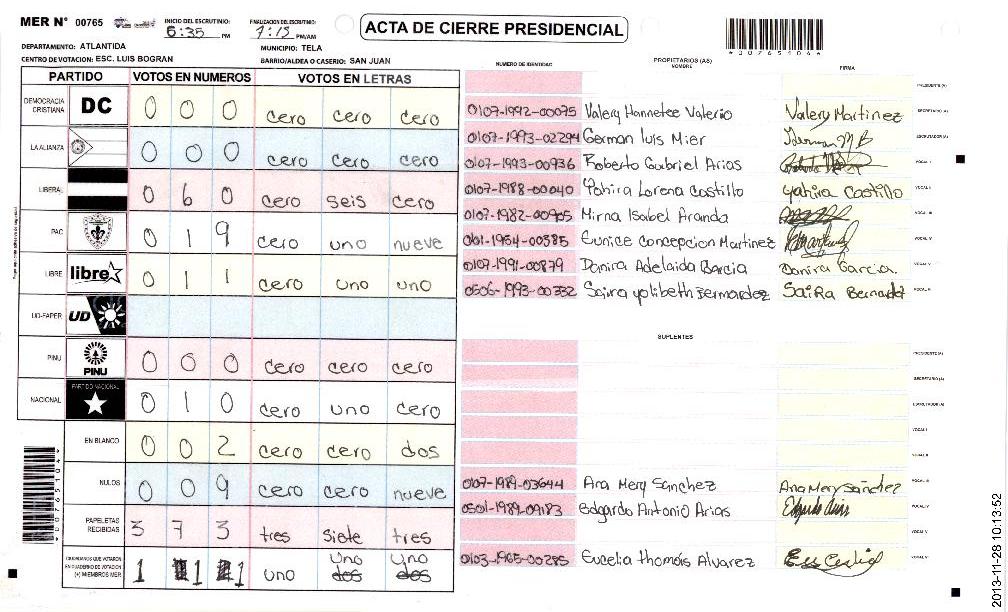 MER N° 00765
INICIO DEL ESCRUTINIO: 5:35 PM
FINALIZACION DEL ESCRUTINIO: 7:15 PM/AM
ACTA DE CIERRE PRESIDENCIAL
*00765104*
DEPARTAMENTO: ATLANTIDA
MUNICIPIO: TELA
CENTRO DE VOTACION: ESC. LUIS BOGRAN
BARRIO/ALDEA O CASERIO: SAN JUAN
PARTIDO VOTOS EN NUMEROS VOTOS EN LETRAS
DEMOCRACIA CRISTIANA DC 0 0 0 cero cero cero
LA ALIANZA 0 0 0 cero cero cero
LIBERAL 0 6 0 cero seis cero
PAC 0 1 9 cero uno nueve
LIBRE libre 0 1 1 cero uno uno
UD-FAPER UD
PINU PINU 0 0 0 cero cero cero
NACIONAL PARTIDO NACIONAL 0 1 0 cero uno cero
EN BLANCO 0 0 2 cero cero dos
NULOS 0 0 9 cero cero nueve
PAPELETAS RECIBIDAS 3 7 3 tres siete tres
CIUDADANOS QUE VOTARON EN CUADERNO DE VOTACION (+) MIEMBROS MER 1 1 1 uno uno dos uno dos
*00765104*
NUMERO DE IDENTIDAD PROPIETARIOS (AS) NOMBRE FIRMA
PRESIDENTE (A)
0107-1992-00075 Valery Hannetee Valerio Valery Martinez SECRETARIO (A)
0107-1993-02294 German luis Mier German M B ESCRUTADOR (A)
0107-1993-00936 Roberto Gabriel Arias VOCAL I
0107-1988-00040 Yahira Lorena Castillo yahira Castillo VOCAL II
0107-1982-00905 Mirna Isabel Aranda VOCAL III
0101-1954-00385 Eunice Concepcion Martinez VOCAL IV
0107-1991-00879 Danira Adelaida Garcia Danira Garcia. VOCAL V
0506-1993-00332 Saira yolibeth Bermardez SaiRa VOCAL VI
SUPLENTES
PRESIDENTE (A)
SECRETARIO (A)
ESCRUTADOR (A)
VOCAL I
VOCAL II
0107-1989-03644 Ana Mery Sanchez Ana Mery Sánchez VOCAL III
0501-1989-09183 Edgardo Antonio Arias VOCAL IV
VOCAL V
0103-1965-00285 Eucelia thomáis Alvarez VOCAL VI
2013-11-28 10:13:52